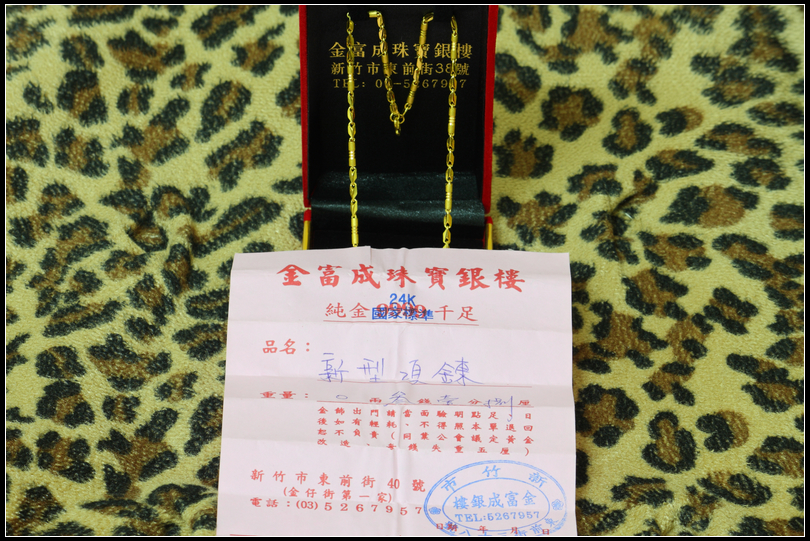 金富成珠寶銀樓
新竹市東前街38號
TEL: 03-5267957
金富成珠寶銀樓
純金 9999 千足
24K
國家標準
品名：
新型項鍊
重量： 0 兩 叁 錢 壹 分 捌 厘
金飾出門請當面驗明點足，日
後如有輕耗、不得照本單退回
恕不負責（同業公會議定黃金
改造、每錢失重五厘）
新竹市東前街40號
(金仔街第一家)
電話：(03) 5267957
新竹市
金富成銀樓
TEL:5267957
日期 年 月 日